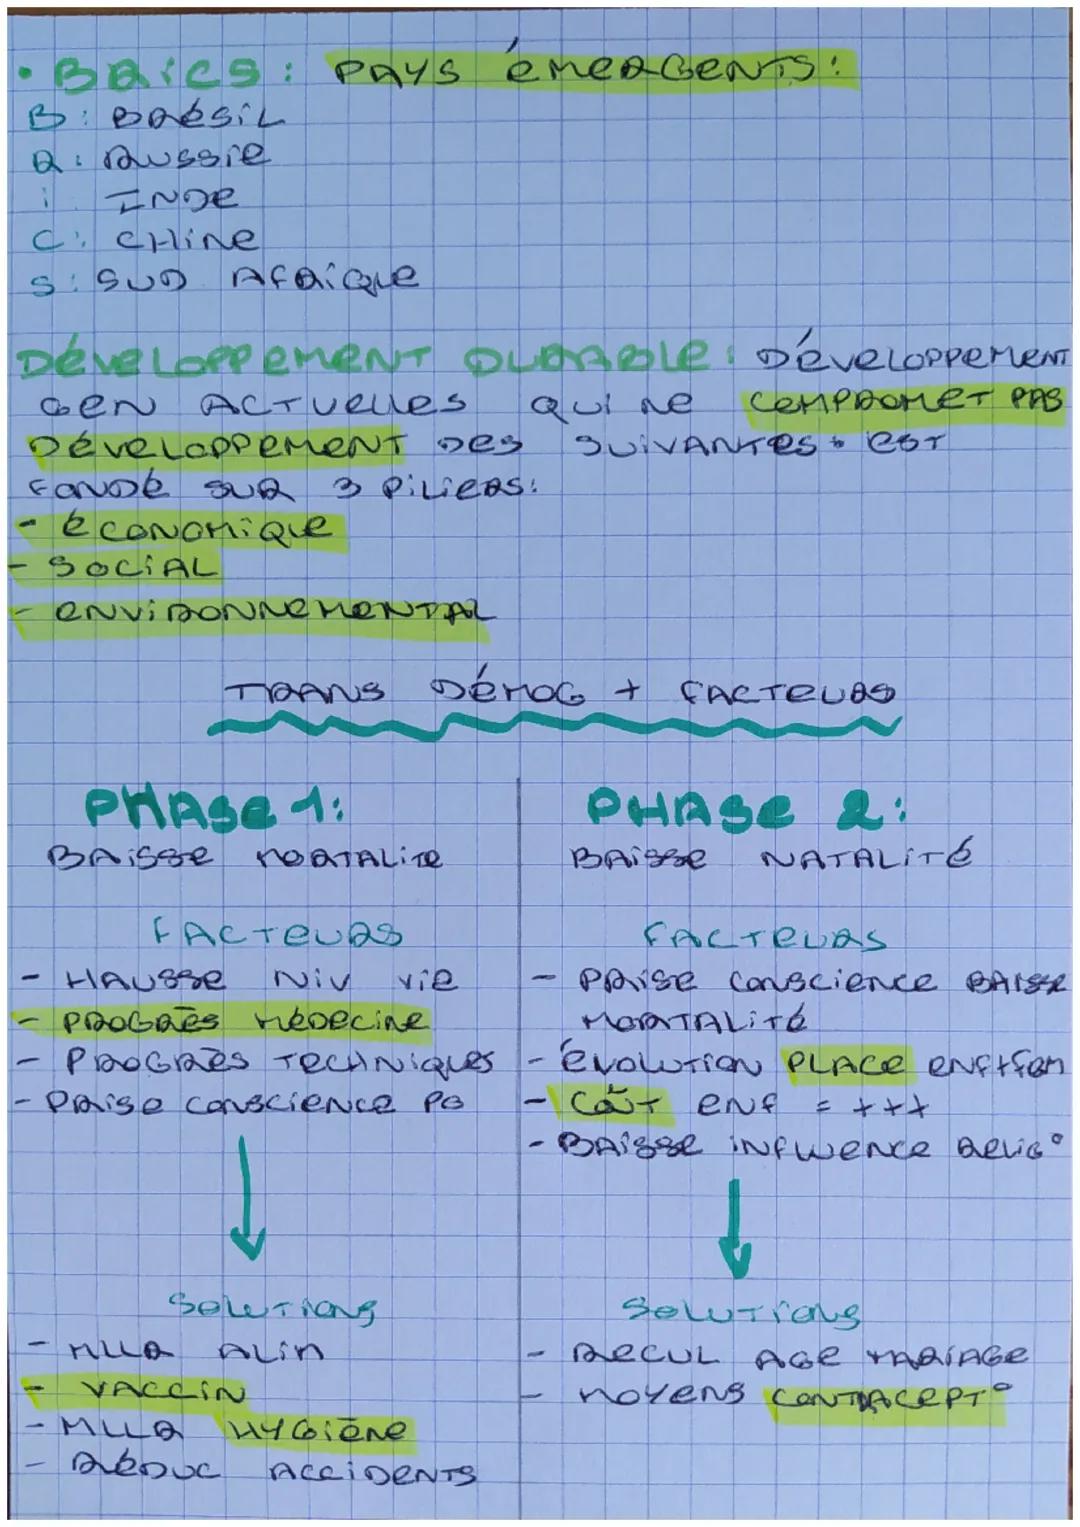 • BRiCS : PAYS éMERGENTS :
B : BRéSiL
R : RUSSIE
i : INDE
C : CHiNE
S : SUD AFRiQUE
DéVELOPPEMENT DURABLE : DéVELOPPEMENT
GEN ACTUELLES QUi NE COMPROMET PAS
DéVELOPPEMENT DES SUiVANTES • EST
FONDé SUR 3 PiLiERS :
- éCONOMiQUE
- SOCiAL
- ENViRONNEMENTAL
TRANS DéMOG + FACTEURS
PHASE 1 :
BAiSSE MORTALiTE
FACTEURS
- HAUSSE NiV ViE
- PROGRèS MéDECiNE
- PROGRèS TECHNiQUES
- PRiSE CONSCIENCE PB
SOLUTiONS
- MLLR ALiM
- VACCiN
- MLLR HYGièNE
- RéDUC ACCiDENTS
PHASE 2 :
BAiSSE NATALiTé
FACTEURS
- PRiSE CONSCIENCE BAISSE
MORTALiTé
- éVOLUTION PLACE ENF+FEM
- COÛT ENF = +++
- BAiSSE iNFLUENCE RELiG°
SOLUTiONS
- RECUL AGE MARiAGE
- MOYENS CONTRACEPT°